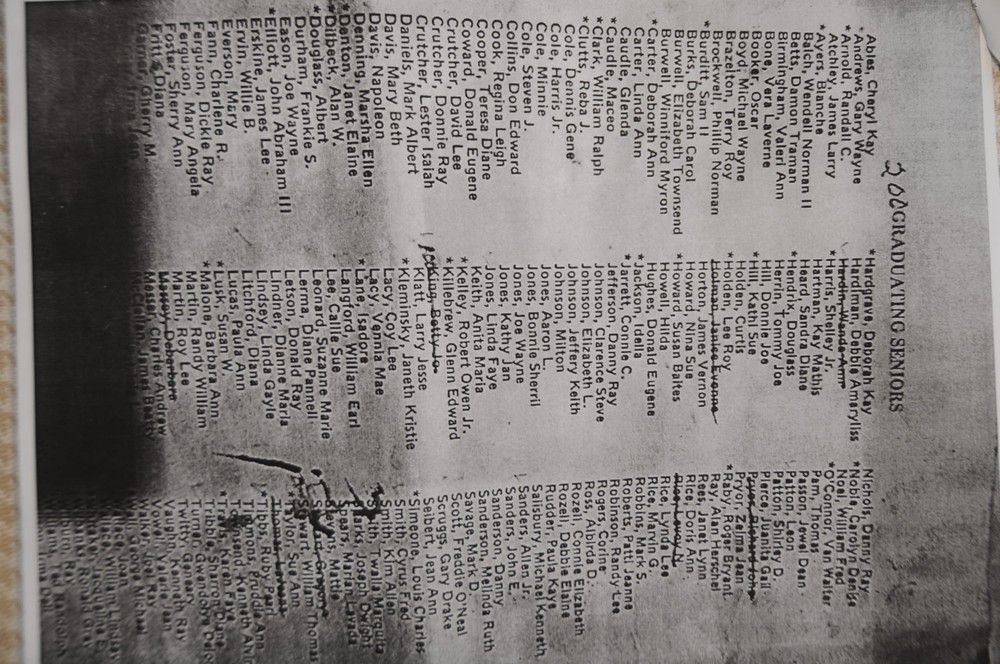 200
GRADUATING SENIORS
Ables, Cheryl Kay
*Andrews, Gary Wayne
*Arnold, Randall C.
Atchley, James Larry
*Ayers, Blanche
Balch, Wendell Norman II
Betts, Damon Traman
Birmingham, Valeri Ann
Bone, Vera Laverne
Booker, Oscar
Boyd, Michael Wayne
Brazelton, Terry Roy
Brockwell, Phillip Norman
*Burditt, Sam II
Burks, Deborah Carol
Burwell, Elizabeth Townsend
Burwell, Winniford Myron
*Carter, Deborah Ann
Carter, Linda Ann
Caudle, Glenda
*Caudle, Maceo
*Clark, William Ralph
*Clutts, Reba J.
Cole, Dennis Gene
Cole, Harris Jr.
Cole, Minnie
Cole, Steven J.
Collins, Don Edward
Cook, Regina Leigh
Cooper, Teresa Diane
Coward, Donald Eugene
Crutcher, David Lee
Crutcher, Donnie Ray
Crutcher, Lester Isaiah
Daniels, Mark Albert
Davis, Mary Beth
Davis, Napoleon
Denning, Marsha Ellen
*Denton, Janet Elaine
*Dilbeck, Alan W.
*Douglass, Albert
Durham, Frankie S.
Eason, Joe Wayne
*Elliott, John Abraham III
Erskine, James Lee
Ervin, Willie B.
Everson, Mary
Fann, Charlene R.
Ferguson, Dickie Ray
Ferguson, Mary Angela
Foster, Sherry Ann
Fritts, Diana
Gherry M.
*Hardgrave, Deborah Kay
Hardiman, Debbie Amaryliss
Hardin, Wanda Ann
*Harris, Shelley Jr.
Hartman, Kay Mathis
Heard, Sandra Diane
*Hendrix, Douglass
Herrin, Tommy Joe
Hill, Donnie Joe
*Hill, Kathi Sue
Holden, Curtis
*Holden, Lee Roy
Holman, Janice Evonne
Horton, James Vernon
Howard, Nina Sue
*Howard, Susan Baites
Howell, Hilda
Hughes, Donald Eugene
*Jackson, Idella
*Jarrett, Connie C.
Jefferson, Danny Ray
Johnson, Clarence Steve
Johnson, Elizabeth L.
Johnson, Jeffery Keith
Johnson, Milton
Jones, Aaron L.
Jones, Bonnie Sherril
Jones, Joe Wayne
Jones, Kathy Jan
Jones, Linda Faye
Keith, Anita Maria
*Kelley, Robert Owen Jr.
*Killebrew, Glenn Edward
King, Betty Jo
Klatt, Larry Jesse
*Kleminsky, Janeth Kristie
Lacy, Coy Lee
Lacy, Vembla Mae
*Lane, Isadore
Langford, William Earl
Lee, Callie Sue
Leonard, Suzanne Marie
Lerma, Diane Pannell
Letson, Donald Ray
Lindner, Dianne Marla
Lindsey, Linda Gayle
Litchford, Diana
Lucas, Paula Ann
*Lusk, Susan W.
*Malone, Barbara Ann
Martin, Randy William
Martin, Roy Lee
Massey, Barbara
Massey, Charles Andrew
Nichols, Danny Ray
*Nobles, Carolyn Denise
Noel, William Fred
*O'Connor, Van Walter
Pann, Thomas
Passon, Jewel Dean
Patton, Leon
Patton, Shirley D.
Pierce, Juanita Gail
Pryor, Zelma Jean
*Raby, Roger Bryant
Ray, Alan Ferschel
Rees, Janet Lynn
Rice, Doris Ann
Rice, Leroy L.
Rice, Lynda Lee
Rice, Marvin G.
Robbins, Mark S.
Roberts, Patti Jeanne
Robinson, Randy Lee
Rogers, Corinne
Rook, Albirda D.
Rozell, Connie Elizabeth
Rozell, Debbie Elaine
Rudder, Paula Kaye
Salisbury, Michael Kenneth
Sanders, Allen Jr.
Sanders, John E.
Sanderson, Danny
Sanderson, Melinda Ruth
Savage, Mark D.
Scott, Freddie O'Neal
Scruggs, Gary Drake
Seibert, Jean Ann
*Simeone, Louis Charles
Smith, Cyrus Fred
Smith, Kim Allen
Smith, Twalla Marquita
Joseph Dwight
Maria Lavada
Thomas
Taylor, Sue Ann
*Tibbs, Ruby Pearl
Kenneth Alvin